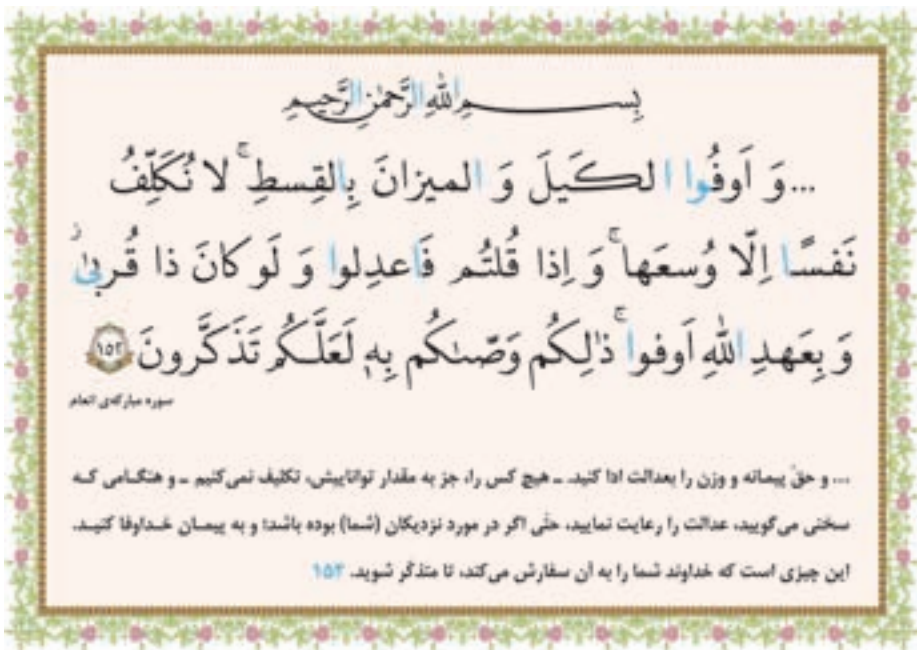 بِسـمِ اللّٰهِ الرَّحمٰنِ الرَّحیمِ
...وَ اَوفُوا الکَیلَ وَ المیزانَ بِالقِسطِ ۚ لا نُکَلِّفُ
نَفسًا اِلّا وُسعَها ۚ وَ اِذا قُلتُم فَاعدِلوا وَ لَو کانَ ذا قُربیٰ ۖ
وَ بِعَهدِ اللّٰهِ اَوفوا ۚ ذٰلِکُم وَصّىٰکُم بِهٖ لَعَلَّکُم تَذَکَّرونَ ﴿۱۵۲﴾
سوره مبارکه‌ی انعام
... و حقّ پیمانه و وزن را بعدالت ادا کنید. ـ هیچ کس را، جز به مقدار تواناییش، تکلیف نمی‌کنیم ـ و هنگـامی کـه
سخنی می‌گویید، عدالت را رعایت نمایید، حتّی اگر در مورد نزدیکان (شما) بوده باشد؛ و به پیمـان خـداوفا کنیـد.
این چیزی است که خداوند شما را به آن سفارش می‌کند، تا متذکّر شوید. ۱۵۲